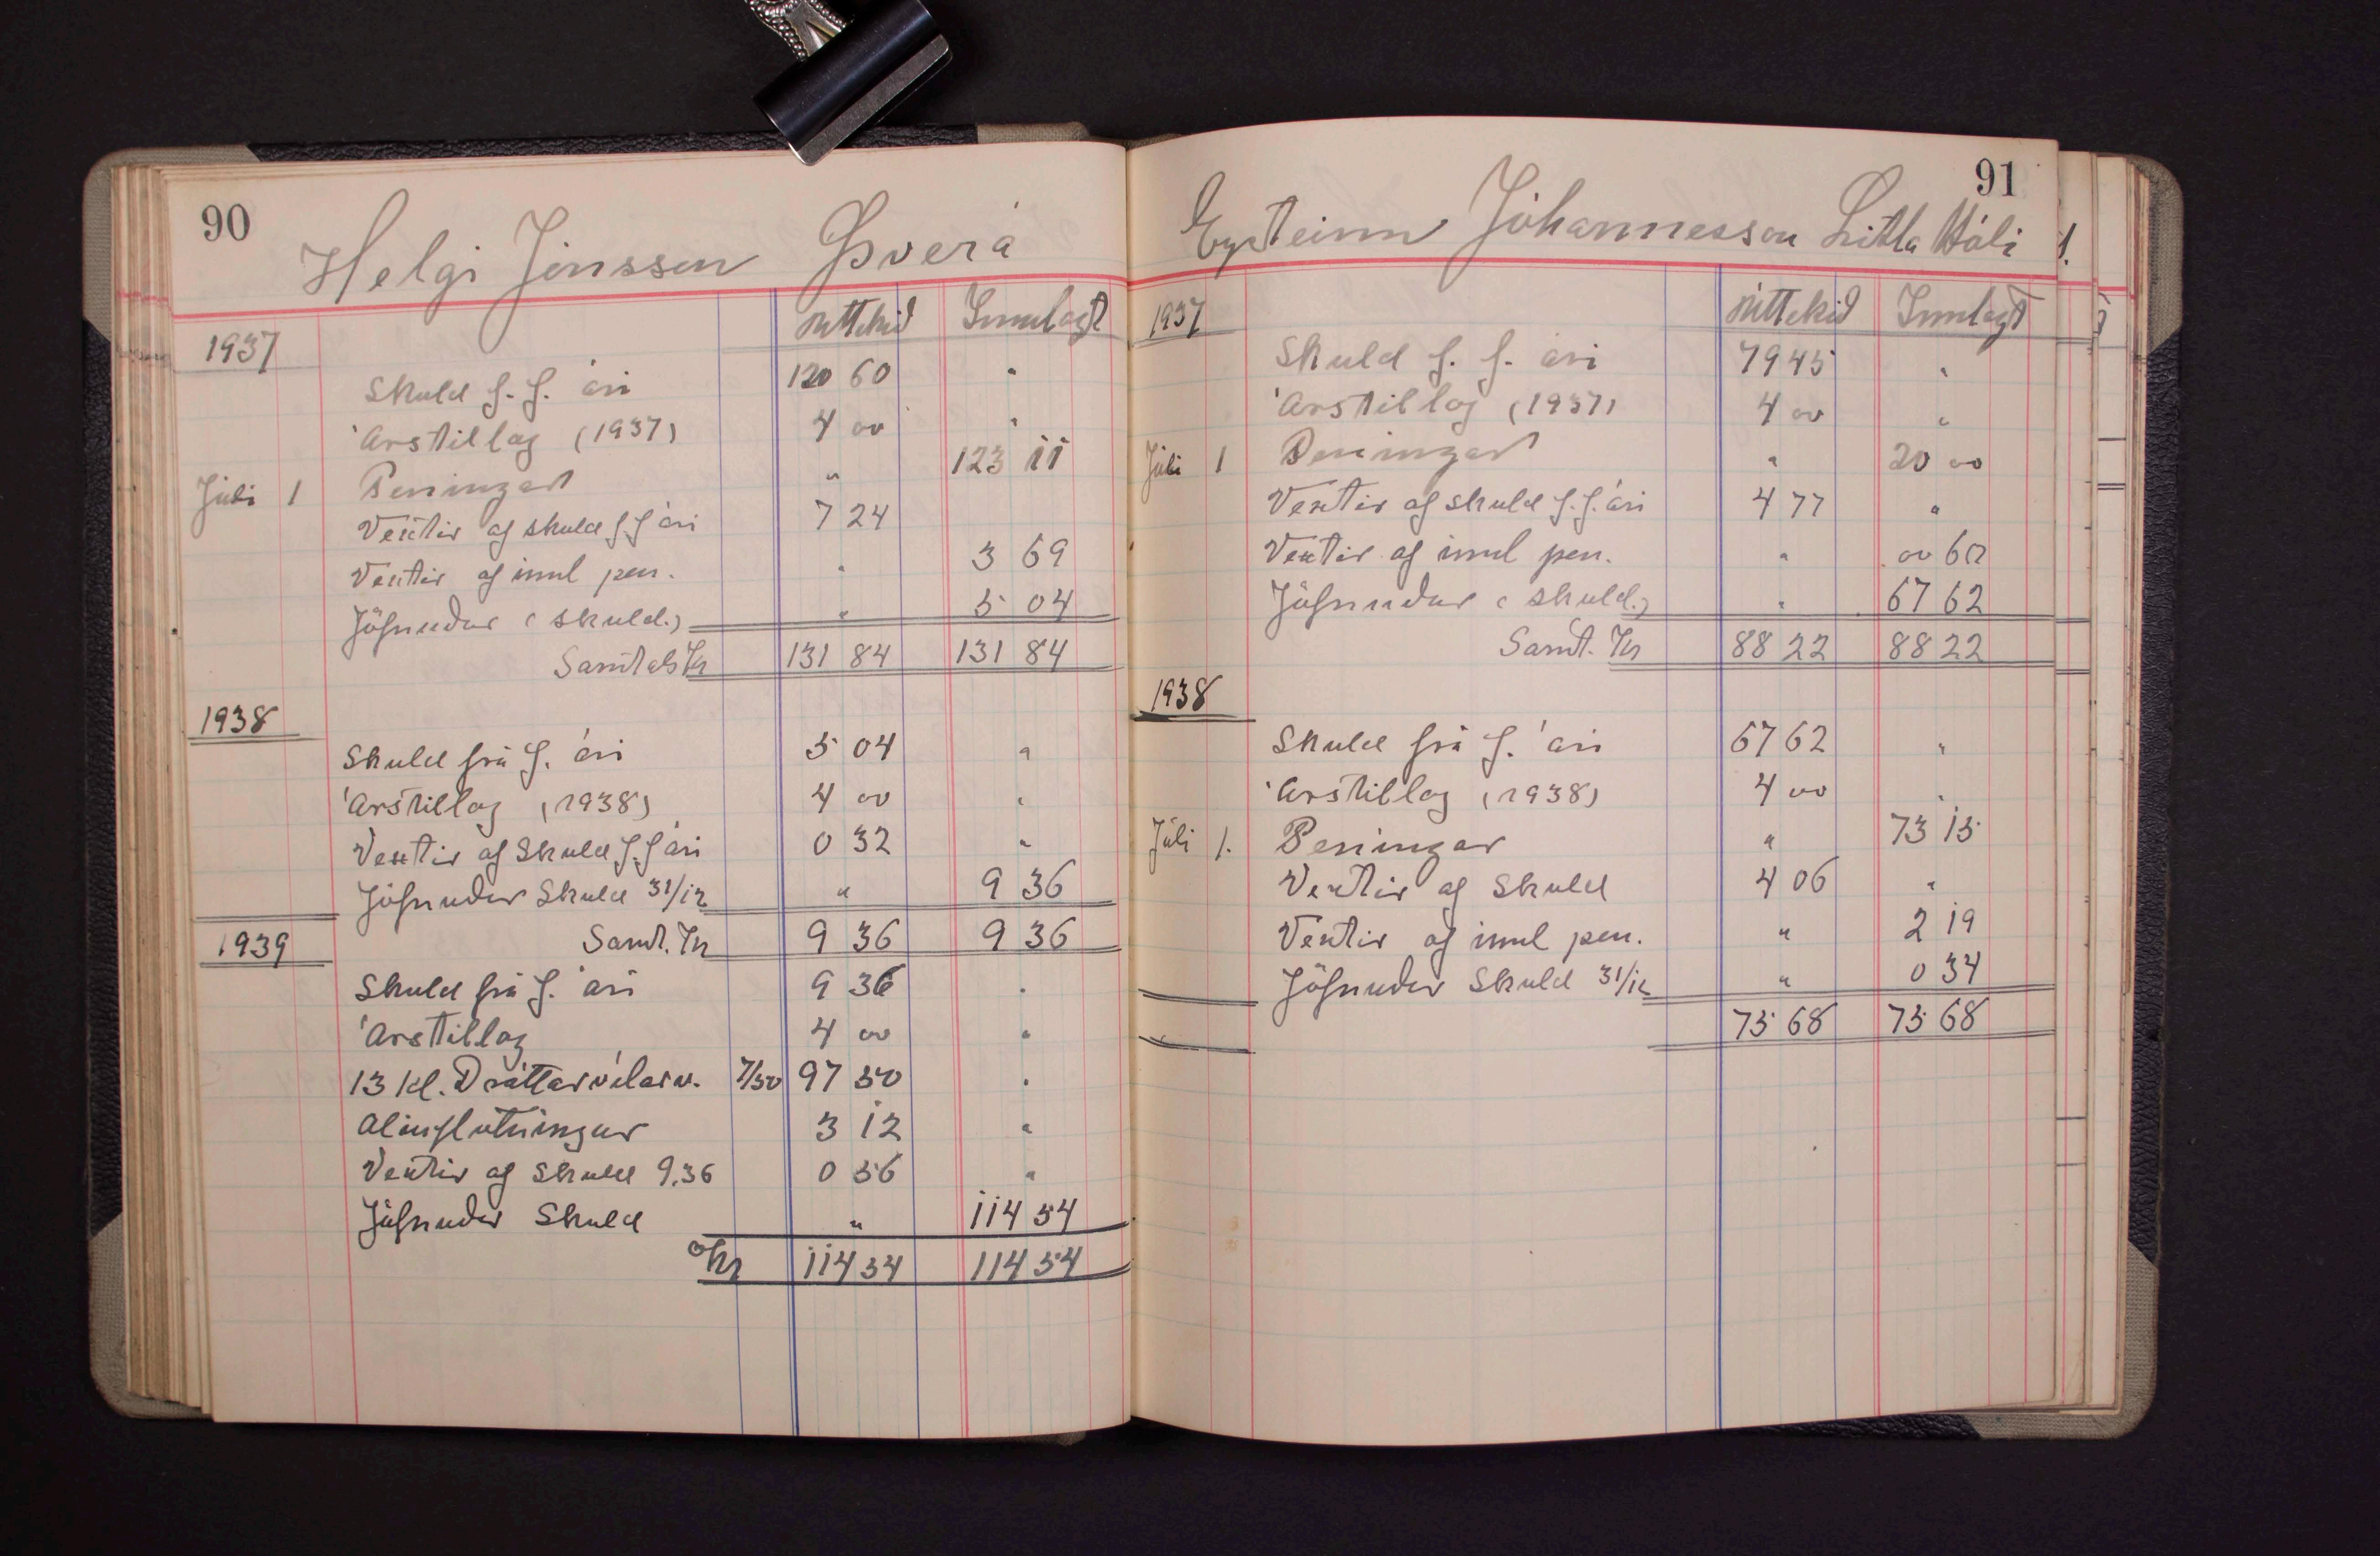 90
Helgi Jónsson Þverá
Úttekið Innlagt
1937
Skuld f. f. ári 120 60 "
Árstillag (1937) 4 00 "
Júlí 1 Peningar " 123 11
Vextir af skuld f f ári 7 24
Vextir af innl pen. " 3 69
Jöfnuður (skuld.) " 5 04
Samtals Kr 131 84 131 84
1938
Skuld frá f. ári 5 04 "
Árstillag (1938) 4 00 "
Vextir af Skuld f. f ári 0 32 "
Jöfnuður Skuld 31/12 " 9 36
1939 Samt. Kr 9 36 9 36
Skuld frá f. ári 9 36 "
Árstillag 4 00 "
13 kl. Dráttarvélarv. 7/50 97 50 "
3 12 "
Vextir af Skuld 9.36 0 56 "
Jöfnuður Skuld " 114 54
Kr 114 54 114 54
91
Eysteinn Jóhannesson Litla Hóli
1937 Úttekið Innlagt
Skuld f. f. ári 79 45 "
Árstillag (1937) 4 00 "
Júlí 1 Peningar " 20 00
Vextir af skuld f. f. ári 4 77 "
Vextir af innl pen. " 00 60
Jöfnuður (skuld.) " 67 62
Samt. Kr 88 22 88 22
1938
Skuld frá f. ári 67 62 "
Árstillag (1938) 4 00 "
Júlí 1. Peningar " 73 15
Vextir af Skuld 4 06 "
Vextir af innl pen. " 2 19
Jöfnuður Skuld 31/12 " 0 34
75 68 75 68